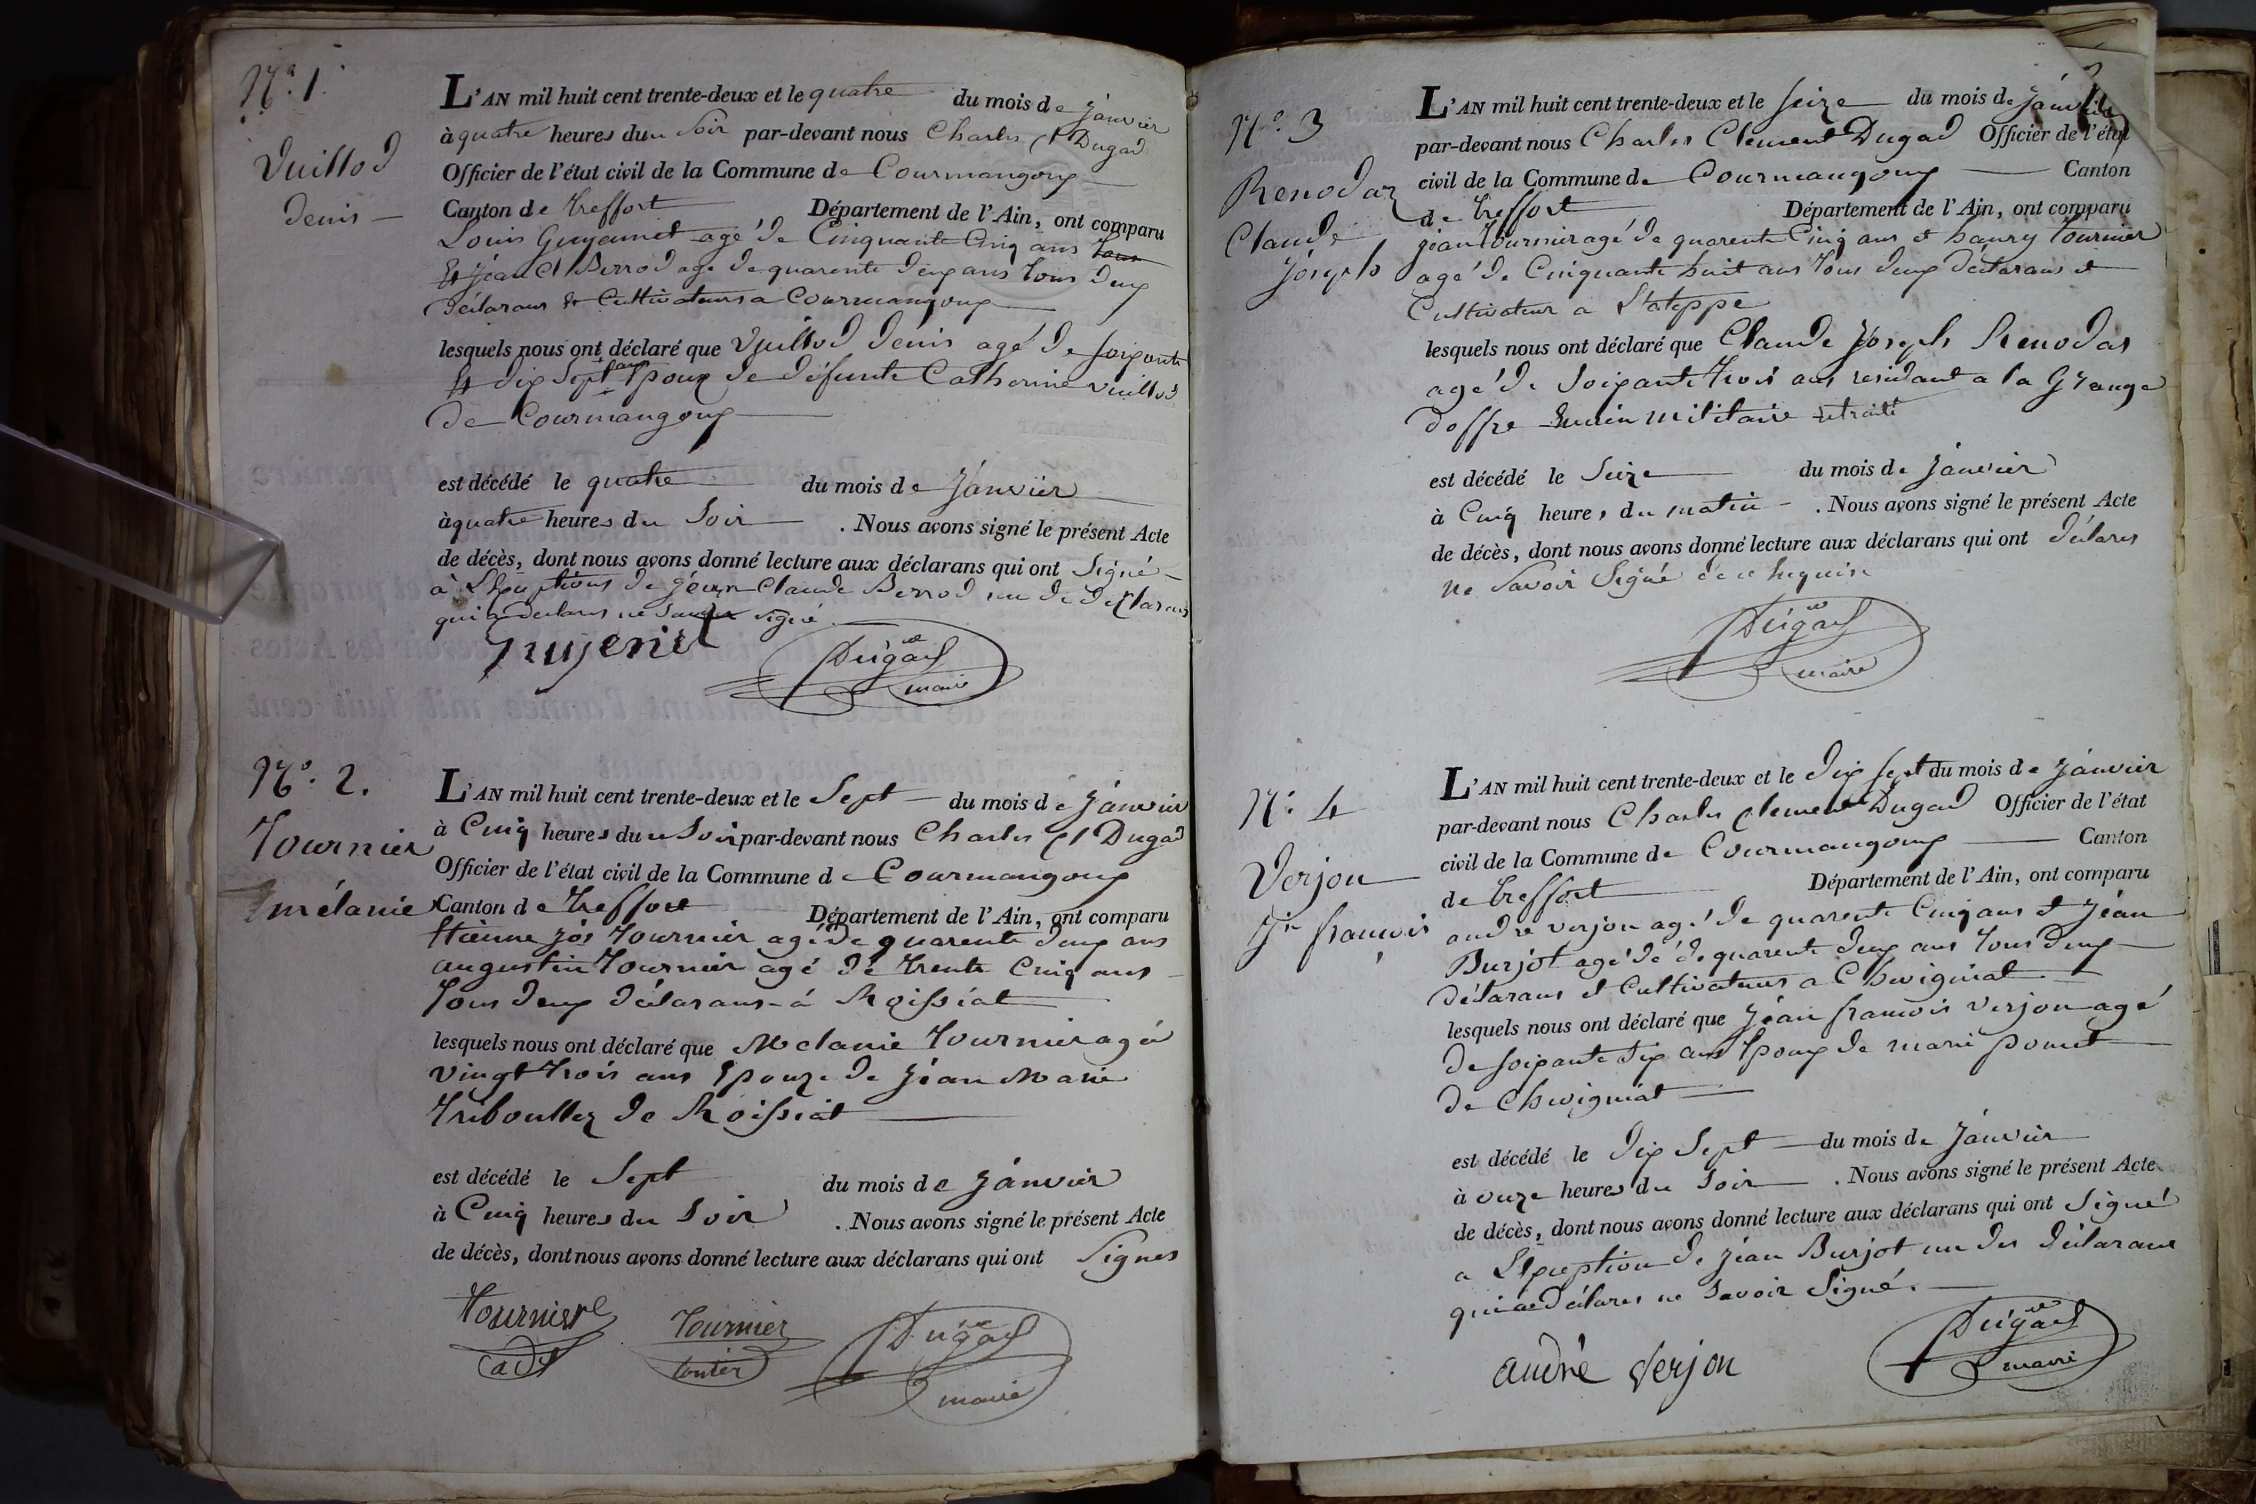 N.° 1.
Vuillod
denis
L'AN mil huit cent trente-deux et le quatre du mois de janvier
à quatre heures du soir par-devant nous Charles Ct Dugad
Officier de l'état civil de la Commune de Courmangoux
Canton de treffort Département de l'Ain, ont comparu
Louis Guyenet agé de Cinquante Cinq ans
Et jean Ct Berrod age de quarente deux ans tous deux
déclarans et Cultivateurs a Courmangoux
lesquels nous ont déclaré que Vuillod denis agé de soixante
et dix sept ans Epoux de défunte Catherine vuillod
de Courmangoux
est décédé le quatre du mois de janvier
à quatre heures du soir . Nous avons signé le présent Acte
de décès, dont nous avons donné lecture aux déclarans qui ont signé
à L'Exeptions de jean Claude Berrod un de declarans
qui a declares ne savoir signé
Guyenet Dugad
maire
N.° 2.
Tournier
mélanie
L'AN mil huit cent trente-deux et le Sept du mois de janvier
à Cinq heures du Soir par-devant nous Charles Ct Dugad
Officier de l'état civil de la Commune de Courmangoux
Canton de treffort Département de l'Ain, ont comparu
Etienne jos Tournier agé de quarente deux ans
augustin Tournier agé de trente Cinq ans
tous deux déclarans à Roissiat
lesquels nous ont déclaré que Melanie Tournier agé
vingt trois ans Epouze de jean Marie
Triboullez de Roissiat
est décédé le Sept du mois de janvier
à Cinq heures du Soir . Nous avons signé le présent Acte
de décès, dont nous avons donné lecture aux déclarans qui ont Signes
Tournier Tournier Dugad
adt maire
N.° 3
Renodaz
Claude
joseph
L'AN mil huit cent trente-deux et le seize du mois de janvier
par-devant nous Charles Clement Dugad Officier de l'état
civil de la Commune de Courmangoux Canton
de treffort Département de l'Ain, ont comparu
jean Tournier agé de quarente Cinq ans et hanry Tournier
agé de Cinquante huit ans tous deux déclarans et
Cultivateur a
lesquels nous ont déclaré que Claude joseph Renodas
agé de Soixante trois ans residant a la Grange
doffre militaire retraité
est décédé le Seize du mois de janvier
à Cinq heures du matin . Nous avons signé le présent Acte
de décès, dont nous avons donné lecture aux déclarans qui ont déclares
ne Savoir Signé de ce requise
Dugad
maire
N.° 4
Verjon
jn françois
L'AN mil huit cent trente-deux et le dix sept du mois de janvier
par-devant nous Charles Clement Dugad Officier de l'état
civil de la Commune de Courmangoux Canton
de treffort Département de l'Ain, ont comparu
andre verjon agé de quarente Cinq ans et jean
Burjot agé de de quarente deux ans tous deux
déclarans et Cultivateurs a Chevigniat
lesquels nous ont déclaré que jean francois verjon agé
de soixante dix ans Epoux de marie pomet
de Chevigniat
est décédé le dix Sept du mois de janvier
à onze heures du Soir . Nous avons signé le présent Acte
de décès, dont nous avons donné lecture aux déclarans qui ont Signé
a L'Exeption de jean Burjot un des déclarans
qui a déclares ne Savoir Signé.
andré Verjon Dugad
maire